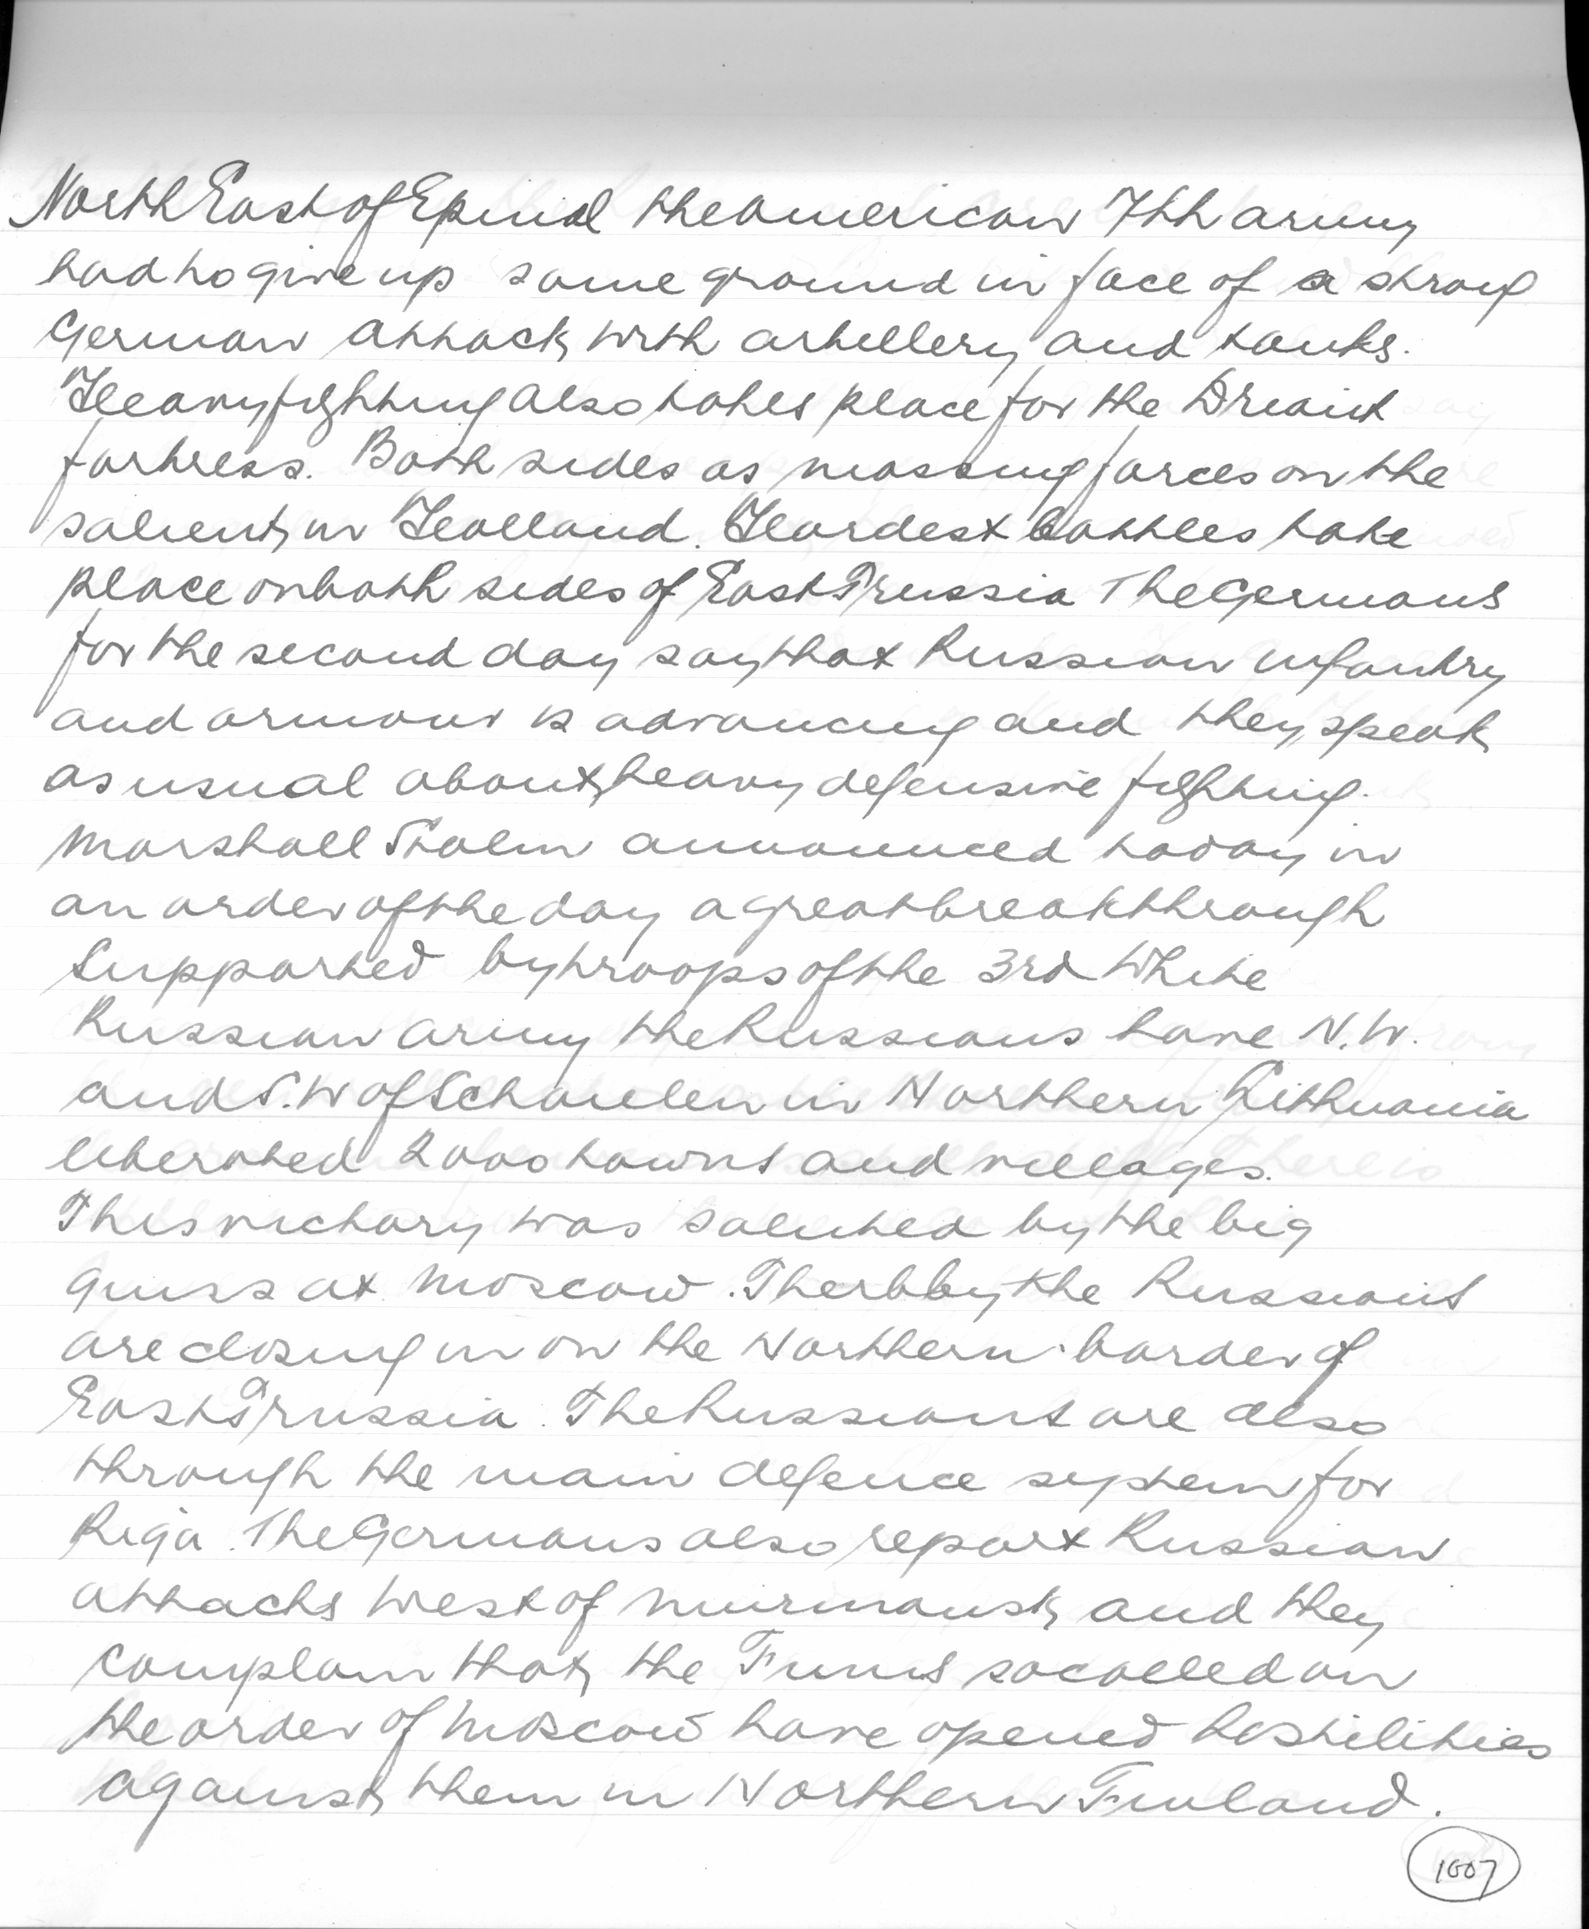 North East of Epinal the American 7th army
had to give up some ground in face of a strong
German attack with artillery and tanks.
Heavy fighting also takes place for the Driant
fortress. Both sides as massing forces on the
salient in Holland. Hardest battles take
place on both sides of East Prussia The Germans
for the second day say that Russian infantry
and armour is advancing and they speak
as usual about heavy defensive fighting.
Marshall Stalin announced today in
an order of the day a great breakthrough
Supported by troops of the 3rd White
Russian army the Russians have N.W.
and S.W of Schaulen in Northern Lithuania
liberated 2000 towns and villages.
This victory was saluted by the big
guns at Moscow. Therbby the Russians
are closing in on the Northern border of
East Prussia. The Russians are also
through the main defence system for
Riga. The Germans also report Russian
attacks West of Murmansk and they
complain that the Finns socalled on
the order of Moscow have opened hostilities
against them in Northern Finland.
1007